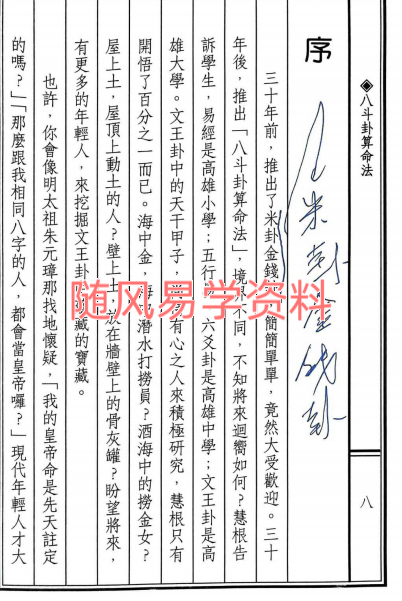 ◈八斗卦算命法
八
序
米卦金钱卦
三十年前，推出了米卦金錢，簡簡單單，竟然大受歡迎。三十
年後，推出「八斗卦算命法」，境界不同，不知將來迴嚮如何？慧根告
訴學生，易經是高雄小學；五行、六爻卦是高雄中學；文王卦是高
雄大學。文王卦中的天干甲子，有心之人來積極研究，慧根只有
開悟了百分之一而已。海中金，海潛水打撈員？酒海中的撈金女？
屋上土，屋頂上動土的人？壁上土，放在牆壁上的骨灰罐？盼望將來，
有更多的年輕人，來挖掘文王卦藏的寶藏。
也許，你會像明太祖朱元璋那找地懷疑，「我的皇帝命是先天註定
的嗎？」「那麼跟我相同八字的人，都會當皇帝囉？」現代年輕人才大
随风易学资料